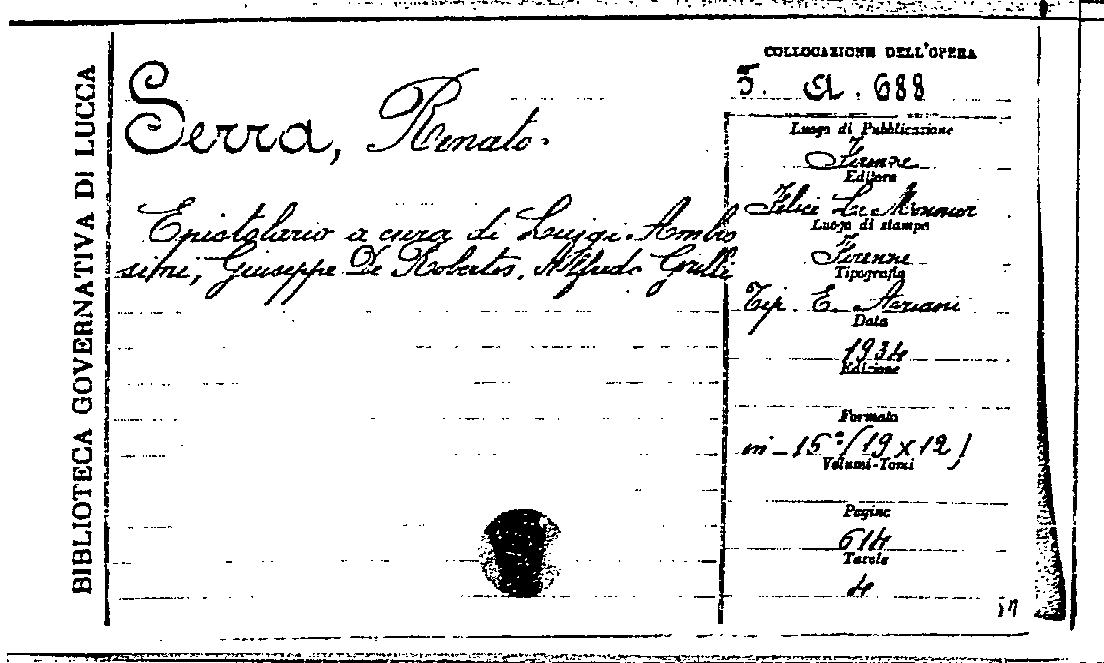 BIBLIOTECA GOVERNATIVA DI LUCCA
Serra, Renato.
Epistolario a cura di Luigi Ambro
sini, Giuseppe De Robertis, Alfredo Grilli
COLLOCAZIONE DELL'OPERA
5. A. 688
Luogo di Pubblicazione
Firenze
Editore
Felice Le Monnier
Luogo di stampa
Firenze
Tipografia
Tip. E. Ariani
Data
1934
Edizione
Formato
in-15°(19x12)
Volumi-Tomi
Pagine
614
Tavole
4
17